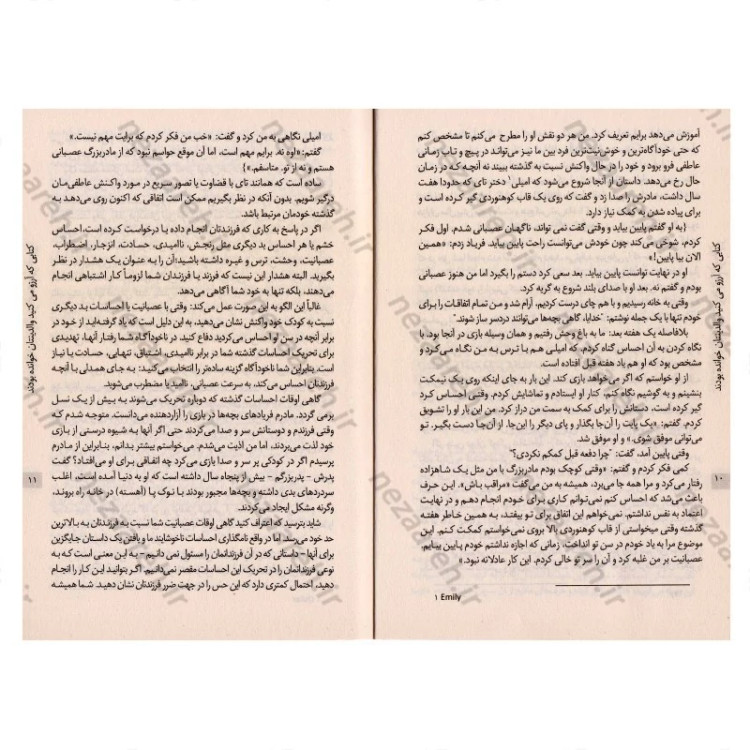 آموزش می‌دهد برایم تعریف کرد. من هر دو نقش او را مطرح می‌کنم تا مشخص کنم
که حتی خودآگاه‌ترین و خوش‌نیت‌ترین فرد بین ما نیز می‌تواند در پیچ و تاب زمانی
عاطفی فرو برود و خود را در حال واکنش نسبت به گذشته ببیند نه آنچه که در زمان
حال رخ می‌دهد. داستان از آنجا شروع می‌شود که امیلی¹ دختر تای که حدودا هفت
سال داشت، مادرش را صدا زد و گفت که روی یک قاب کوهنوردی گیر کرده است و
برای پیاده شدن به کمک نیاز دارد.
(به او گفتم پایین بیاید و وقتی گفت نمی تواند، ناگهان عصبانی شدم. اول فکر
کردم، شوخی می‌کند چون خودش می‌توانست راحت پایین بیاید. فریاد زدم: «همین
الان بیا پایین!»
او در نهایت توانست پایین بیاید. بعد سعی کرد دستم را بگیرد اما من هنوز عصبانی
بودم و گفتم نه. بعد او با صدای بلند شروع به گریه کرد.
وقتی به خانه رسیدیم و با هم چای درست کردیم، آرام شد و من تمام اتفاقات را برای
خودم تنها با یک جمله نوشتم: "خدایا، گاهی بچه‌ها می‌توانند دردسر ساز شوند."
بلافاصله یک هفته بعد: ما به باغ وحش رفتیم و همان وسیله بازی در آنجا بود. با
نگاه کردن به آن احساس گناه کردم. که امیلی هم با ترس به من نگاه می‌کرد و
مشخص بود که او هم یاد هفته قبل افتاده است.
از او خواستم که اگر می‌خواهد بازی کند. این بار به جای اینکه روی یک نیمکت
بنشینم و به گوشیم نگاه کنم، کنار او ایستادم و تماشایش کردم. وقتی احساس کرد
گیر کرده است، دستانش را برای کمک به سمت من دراز کرد. من این بار او را تشویق
کردم. گفتم: «یک پایت را آن‌جا بگذار و پای دیگر را این‌جا. از آن‌جا دست بگیر. تو
می‌توانی موفق شوی.» و او موفق شد.
وقتی پایین آمد، گفت: "چرا دفعه قبل کمکم نکردی؟"
کمی فکر کردم و گفتم: «وقتی کوچک بودم مادربزرگ با من مثل یک شاهزاده
رفتار می‌کرد و مرا همه جا می‌برد، همیشه به من می‌گفت «مراقب باش». این حرف
باعث می‌شد که احساس کنم نمی‌توانم کاری برای خودم انجام دهم و در نهایت
اعتماد به نفس نداشتم. نمی‌خواهم این اتفاق برای تو بیفتد، به همین خاطر هفته
گذشته وقتی میخواستی از قاب کوهنوردی بالا بروی نمی‌خواستم کمکت کنم. این
موضوع مرا به یاد خودم در سن تو انداخت. زمانی که اجازه نداشتم خودم پایین بیایم.
عصبانیت بر من غلبه کرد و آن را سر تو خالی کردم. این کار عادلانه نبود.»
۱ Emily
۱۰
کتابی که آرزو می کنید والدیتان خوانده بودند
امیلی نگاهی به من کرد و گفت: «خب من فکر کردم که برایت مهم نیست.»
گفتم:«اوه نه. برایم مهم است، اما آن موقع حواسم نبود که از مادربزرگ عصبانی
هستم و نه از تو. متأسفم.»)
ساده است که همانند تای با قضاوت یا تصور سریع در مورد واکنش عاطفی‌مان
درگیر شویم. بدون آنکه در نظر بگیریم ممکن است اتفاقی که اکنون روی می‌دهد به
گذشته خودمان مرتبط باشد.
اگر در پاسخ به کاری که فرزندتان انجام داده یا درخواست کرده است،احساس
خشم یا هر احساس بد دیگری مثل رنجش، ناامیدی، حسادت، انزجار، اضطراب،
عصبانیت، وحشت، ترس و غیره داشته باشید؛آن را به عنوان یک هشدار در نظر
بگیرید. البته هشدار این نیست که فرزند یا فرزندان شما لزوماً کار اشتباهی انجام
می‌دهند، بلکه تنها به خود شما آگاهی می‌دهد.
غالباً این الگو به این صورت عمل می‌کند: وقتی با عصبانیت یا احساسات بد دیگری
نسبت به کودک خود واکنش نشان می‌دهید، به این دلیل است که یاد گرفته‌اید از خود در
برابر آنچه در سن او احساس می‌کردید دفاع کنید. در ناخودآگاه شما رفتار آنها، تهدیدی
برای تحریک احساسات گذشته شما در برابر ناامیدی، اشتیاق، تنهایی، حسادت یا نیاز
است. بنابراین شما ناخودآگاه گزینه ساده‌تر را انتخاب می‌کنید: به جای همدلی با آنچه
فرزندتان احساس می‌کند، به سرعت عصبانی، ناامید یا مضطرب می‌شوید.
گاهی اوقات احساسات گذشته که دوباره تحریک می‌شوند به بیش از یک نسل
برمی گردد. مادرم فریادهای بچه‌ها در بازی را آزاردهنده می‌دانست. متوجه شدم که
وقتی فرزندم و دوستانش سر و صدا می‌کردند حتی اگر آنها به شیوه درستی از بازی
خود لذت می‌بردند، اما من اذیت می‌شدم. می‌خواستم بیشتر بدانم، بنابراین از مادرم
پرسیدم اگر در کودکی پر سر و صدا بازی می‌کرد چه اتفاقی برای او می‌افتاد؟ گفت
پدرش - پدربزرگم – بیش از پنجاه سال داشته است که او به دنیا آمده است، اغلب
سردردهای بدی داشته و بچه‌ها مجبور بودند با نوک پا (آهسته) در خانه راه بروند،
وگرنه مشکل ایجاد می‌کردند.
شاید بترسید که اعتراف کنید گاهی اوقات عصبانیت شما نسبت به فرزندتان به بالاترین
حد خود می‌رسد. اما در واقع نامگذاری احساسات ناخوشایند ما و یافتن یک داستان جایگزین
برای آنها – داستانی که در آن فرزندانمان را مسئول نمی دانیم – به این معنی است که به
نوعی فرزندانمان را در تحریک این احساسات مقصر نمی‌دانیم. اگر بتوانید این کار را انجام
دهید، احتمال کمتری دارد که این حس را در جهت ضرر فرزندتان نشان دهید. شما همیشه
۱۱
کتابی که آرزو می کنید والدیتان خوانده بودند
nezaareh.ir